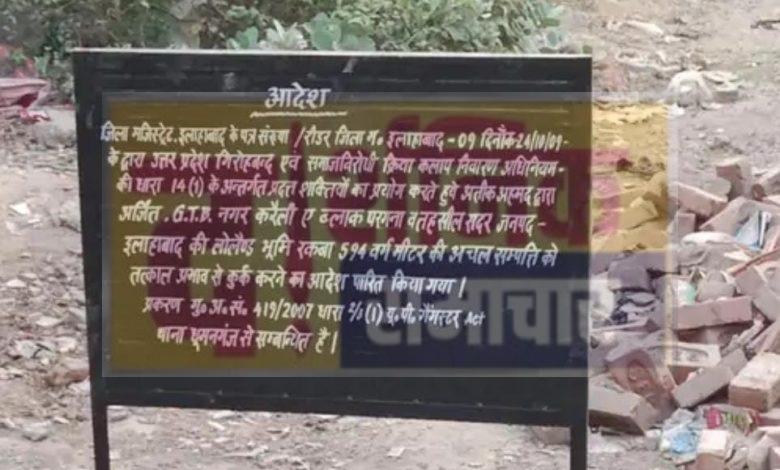 आदेश
जिला मजिस्ट्रेट, इलाहाबाद के पत्र संख्या /रीडर जिला म० इलाहाबाद - 09 दिनाँक-24/10/09-
के द्वारा उत्तर प्रदेश गिरोहबन्द एवं समाजविरोधी क्रिया कलाप निवारण अधिनियम-
की धारा 14(1) के अन्तर्गत प्रदत्त शक्तियों का प्रयोग करते हुये अतीक अहमद द्वारा
अर्जित . G.T.B. नगर करैली ए ब्लाक परगना व तहसील सदर जनपद-
इलाहाबाद की लोलैण्ड भूमि रकबा 594 वर्ग मीटर की अचल सम्पत्ति को
तत्काल प्रभाव से कुर्क करने का आदेश पारित किया गया।
प्रकरण मु० अ० सं० 419/2007 धारा 3/2(1) यू० पी० गैंगस्टर Act
थाना धूमनगंज से सम्बन्धित है।
समाचार